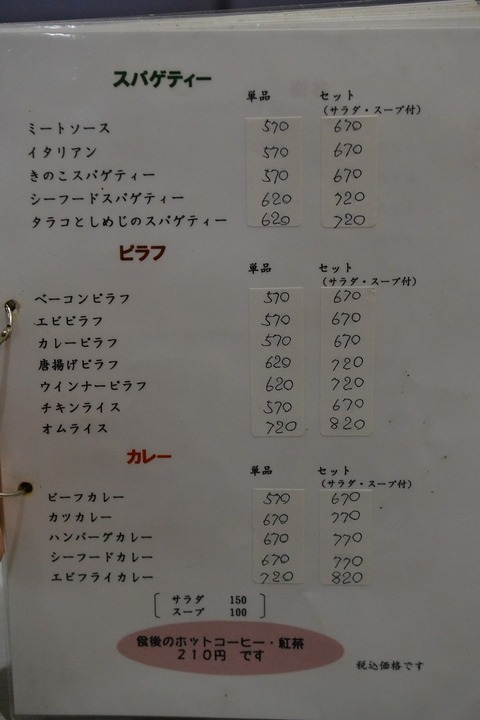 スパゲティー
単品 セット
(サラダ・スープ付)
ミートソース 570 670
イタリアン 570 670
きのこスパゲティー 570 670
シーフードスパゲティー 620 720
タラコとしめじのスパゲティー 620 720
ピラフ
単品 セット
(サラダ・スープ付)
ベーコンピラフ 570 670
エビピラフ 570 670
カレーピラフ 570 670
唐揚げピラフ 620 720
ウインナーピラフ 620 720
チキンライス 570 670
オムライス 720 820
カレー
単品 セット
(サラダ・スープ付)
ビーフカレー 570 670
カツカレー 670 770
ハンバーグカレー 670 770
シーフードカレー 670 770
エビフライカレー 720 820
サラダ 150
スープ 100
食後のホットコーヒー・紅茶
210円 です
税込価格です